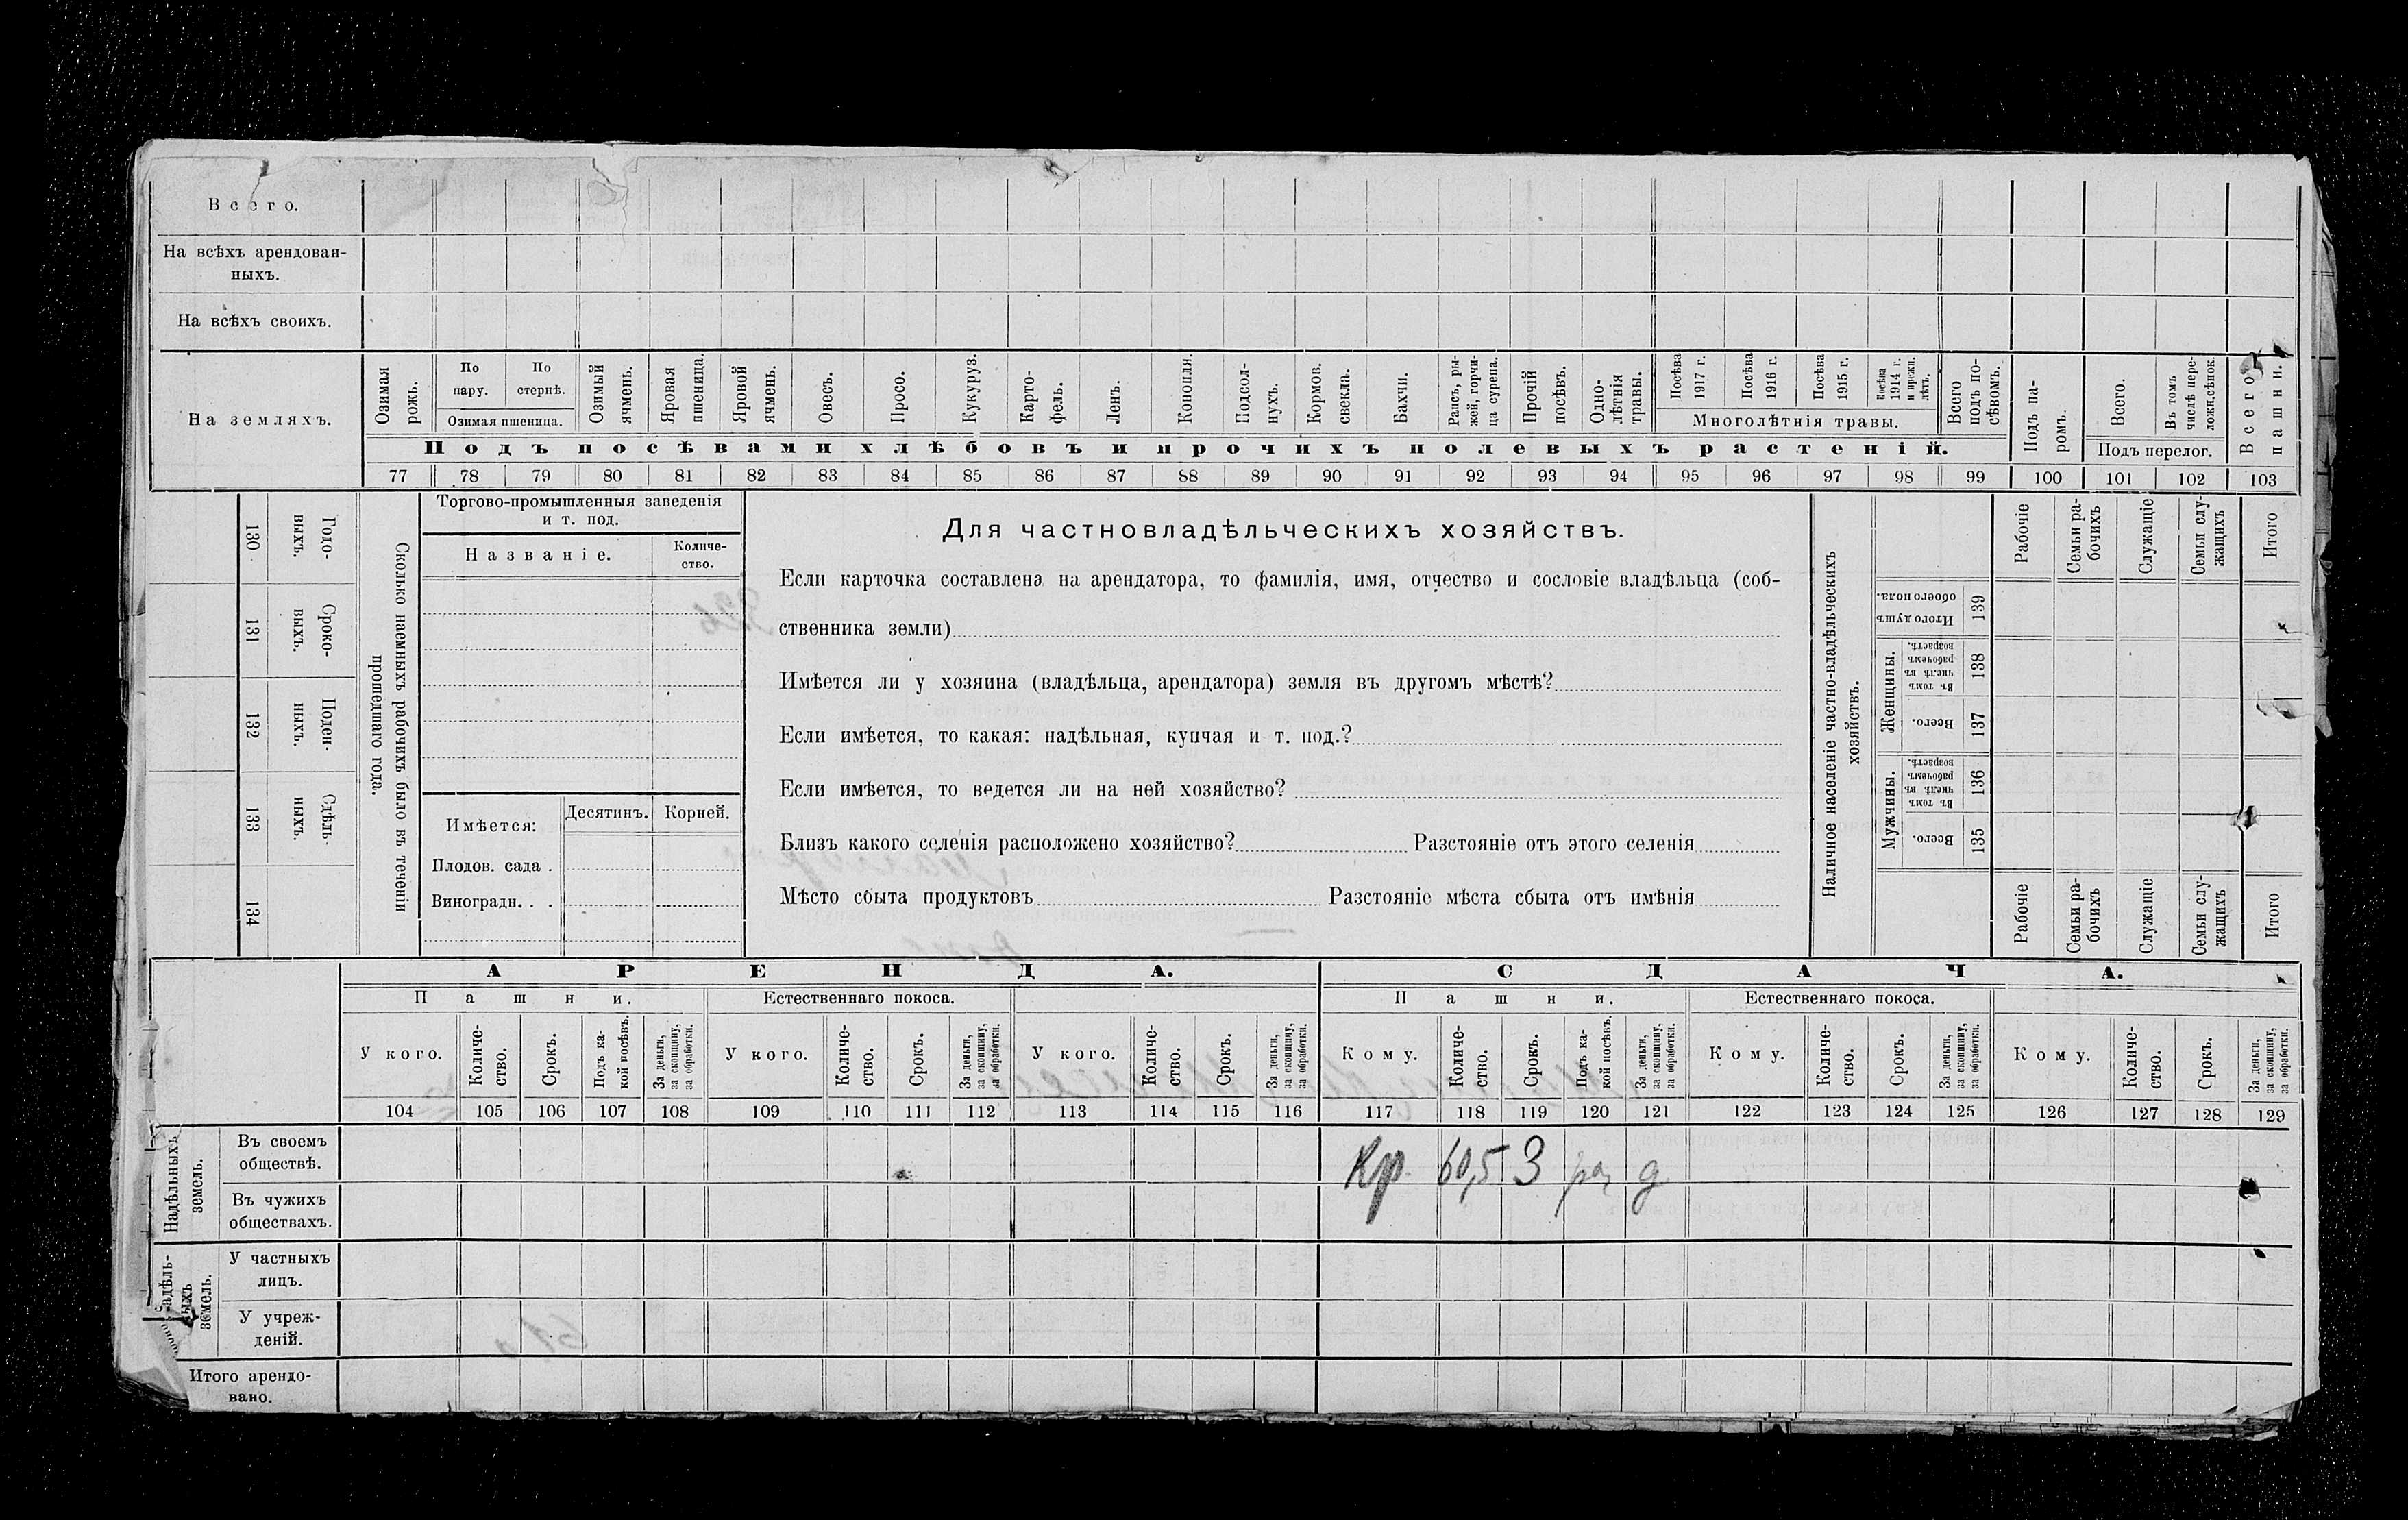 Всего.
На всѣхъ арендован-
ныхъ.
На всѣхъ своихъ.
На земляхъ.
Озимая рожь.
По пару.
По стернѣ.
Озимая пшеница.
Озимый ячмень.
Яровая пшеница.
Яровой ячмень.
Овесъ.
Просо.
Кукуруз.
Карто-
фель.
Ленъ.
Конопля.
Подсол-
нухъ.
Кормов. свекла.
Бахчи.
Рапсъ, ры-
жей, горчи-
ца сурепа.
Прочій посѣвъ.
Одно-
лѣтнія травы.
Посѣва 1917 г.
Посѣва 1916 г.
Посѣва 1915 г.
Посѣва 1914 г. и прежн. лѣтъ.
Многолѣтнія травы.
Всего подъ по-
сѣвомъ.
Подъ па-
ромъ.
Всего.
Въ томъ числѣ пере-
ложн.сѣнок.
Подъ перелог.
Всего пашни.
Подъ посѣвами хлѣбовъ и прочихъ полевыхъ растеній.
77 78 79 80 81 82 83 84 85 86 87 88 89 90 91 92 93 94 95 96 97 98 99 100 101 102 103
130 Годо-
выхъ.
131 Сроко-
выхъ.
132 Поден-
ныхъ.
133 Сдѣль-
ныхъ.
134
Сколько наемныхъ рабочихъ было въ теченіи
прошедшаго года.
Торгово-промышленныя заведенія
и т. под.
Названіе.
Количе-
ство.
Имѣется:
Десятинъ.
Корней.
Плодов. сада .
Виноградн. . .
Для частновладѣльческихъ хозяйствъ.
Если карточка составлена на арендатора, то фамилія, имя, отчество и сословіе владѣльца (соб-
ственника земли)
Имѣется ли у хозяина (владѣльца, арендатора) земля въ другомъ мѣстѣ?
Если имѣется, то какая: надѣльная, купчая и т. под.?
Если имѣется, то ведется ли на ней хозяйство?
Близъ какого селенія расположено хозяйство? Разстояніе отъ этого селенія
Мѣсто сбыта продуктовъ Разстояніе мѣста сбыта отъ имѣнія
Наличное населеніе частно-владѣльческихъ
хозяйствъ.
Итого душъ обоего пола. 139
Женщины.
Въ томъ числѣ въ рабочемъ возрастѣ. 138
Всего. 137
Мужчины.
Въ томъ числѣ въ рабочемъ возрастѣ. 136
Всего. 135
Рабочіе
Семьи ра-
бочихъ
Служащіе
Семьи слу-
жащихъ
Итого
Рабочіе
Семьи ра-
бочихъ
Служащіе
Семьи слу-
жащихъ
Итого
АРЕНДА.
СДАЧА.
Пашни.
Естественнаго покоса.
Пашни.
Естественнаго покоса.
У кого.
Количе-
ство.
Срокъ.
Подъ ка-
кой посѣвъ.
За деньги,
за скопщину,
за обработки.
У кого.
Количе-
ство.
Срокъ.
За деньги,
за скопщину,
за обработки.
У кого.
Количе-
ство.
Срокъ.
За деньги,
за скопщину,
за обработки.
Кому.
Количе-
ство.
Срокъ.
Подъ ка-
кой посѣвъ.
За деньги,
за скопщину,
за обработки.
Кому.
Количе-
ство.
Срокъ.
За деньги,
за скопщину,
за обработки.
Кому.
Количе-
ство.
Срокъ.
За деньги,
за скопщину,
за обработки.
104 105 106 107 108 109 110 111 112 113 114 115 116 117 118 119 120 121 122 123 124 125 126 127 128 129
Надѣльныхъ
земель.
Въ своемъ
обществѣ.
Кр. 60,5 3 д
Въ чужихъ
обществахъ.
земель.
У частныхъ
лицъ.
У учреж-
деній.
Итого арендо-
вано.